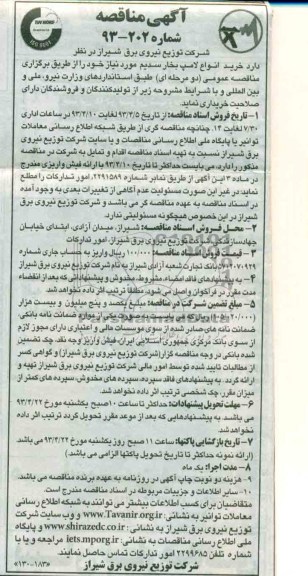 آگهی مناقصه
شماره ۲۰۲-۹۳
شرکت توزیع نیروی برق شیراز در نظر
دارد خرید انواع لامپ بخار سدیم مورد نیاز خود را از طریق برگزاری
مناقصه عمومی (دو مرحله ای) طبق استانداردهای وزارت نیرو، ملی و
بین المللی و با شرایط مشروحه زیر از تولیدکنندگان و فروشندگان دارای
صلاحیت خریداری نماید.
۱- تاریخ فروش اسناد مناقصه: از تاریخ ۹۳/۳/۵ لغایت ۹۳/۳/۱۰ در ساعات اداری
۷/۳۰ لغایت ۱۴. چنانچه مناقصه گری از طریق شبکه اطلاع رسانی معاملات
توانیر یا پایگاه ملی اطلاع رسانی مناقصات و یا سایت شرکت توزیع نیروی
برق شیراز نسبت به تهیه اسناد مناقصه اقدام و تمایل به شرکت در مناقصه
مذکور را دارد، می بایست حداکثر تا تاریخ ۹۳/۳/۱۰ با ارائه فیش واریزی مندرج
در ماده ۳ این آگهی از طریق نمابر شماره ۲۲۹۱۵۸۹، امور تدارکات را مطلع
نماید در غیر این صورت مسئولیت عدم آگاهی از تغییرات بعدی به وجود آمده
در اسناد مناقصه به عهده مناقصه گر می باشد و شرکت توزیع نیروی برق
شیراز در این خصوص هیچگونه مسئولیتی ندارد.
۲- محل فروش اسناد مناقصه: شیراز، میدان آزادی، ابتدای خیابان
جهادسازندگی، شرکت توزیع نیروی برق شیراز، امور تدارکات
۳- قیمت فروش اسناد مناقصه: ۱۰۰/۰۰۰ ریال واریز به حساب جاری شماره
بانک تجارت شعبه آزادی شیراز به نام شرکت توزیع نیروی برق شیراز
۴- به پیشنهادهای فاقد امضاء، مشروط، مخدوش و پیشنهاداتی که بعد از انقضاء
مدت مقرر در فراخوان واصل می شود، مطلقاً ترتیب اثر داده نخواهد شد.
۵- مبلغ تضمین شرکت در مناقصه: مبلغ یکصد و پنج میلیون و بیست هزار
ریال می باشد که می بایست به صورت یکی از موارد ضمانت نامه بانکی،
ضمانت نامه های صادر شده از سوی موسسات مالی و اعتباری دارای مجوز لازم
از سوی بانک مرکزی جمهوری اسلامی ایران، فیش واریز وجه نقد، چک تضمین
شده بانکی در وجه مناقصه گزار (شرکت توزیع نیروی برق شیراز) و گواهی کسر
از مطالبات تایید شده توسط امور مالی شرکت توزیع نیروی برق شیراز تهیه و
ارائه گردد. به پیشنهادهای فاقد سپرده، سپرده های مخدوش، سپرده های کمتر از
میزان مقرر، چک شخصی ترتیب اثر داده نخواهد شد.
۶- مهلت تحویل پیشنهادات: حداکثر تا ساعت ۱۰ صبح یکشنبه مورخ ۹۳/۳/۲۲
می باشد. به پیشنهادهایی که بعد از موعد مقرر تحویل گردد ترتیب اثر داده
نخواهد شد.
۷- تاریخ بازگشایی پاکتها: ساعت ۱۱ صبح روز یکشنبه مورخ ۹۳/۳/۲۲ می باشد.
(ارائه نمونه حداکثر تا تاریخ تحویل پاکتها الزامی می باشد.)
۸- مدت اجرا: یک ماه
۹- هزینه دو نوبت چاپ آگهی در روزنامه به عهده برنده مناقصه می باشد.
۱۰- سایر اطلاعات و جزییات مربوطه در اسناد مناقصه مندرج است.
متقاضیان برای کسب اطلاعات بیشتر می توانند به شبکه اطلاع رسانی
معاملات توانیر به نشانی: www.Tavanir.org.ir و وب سایت شرکت
توزیع نیروی برق شیراز به نشانی www.shirazedc.co.ir و پایگاه
ملی اطلاع رسانی مناقصات به نشانی iets.mporg.ir مراجعه و یا با
شماره تلفن ۲۲۹۹۶۸۵ امور تدارکات تماس حاصل نمایند.
شرکت توزیع نیروی برق شیراز
۱۳۰-۱۸۳